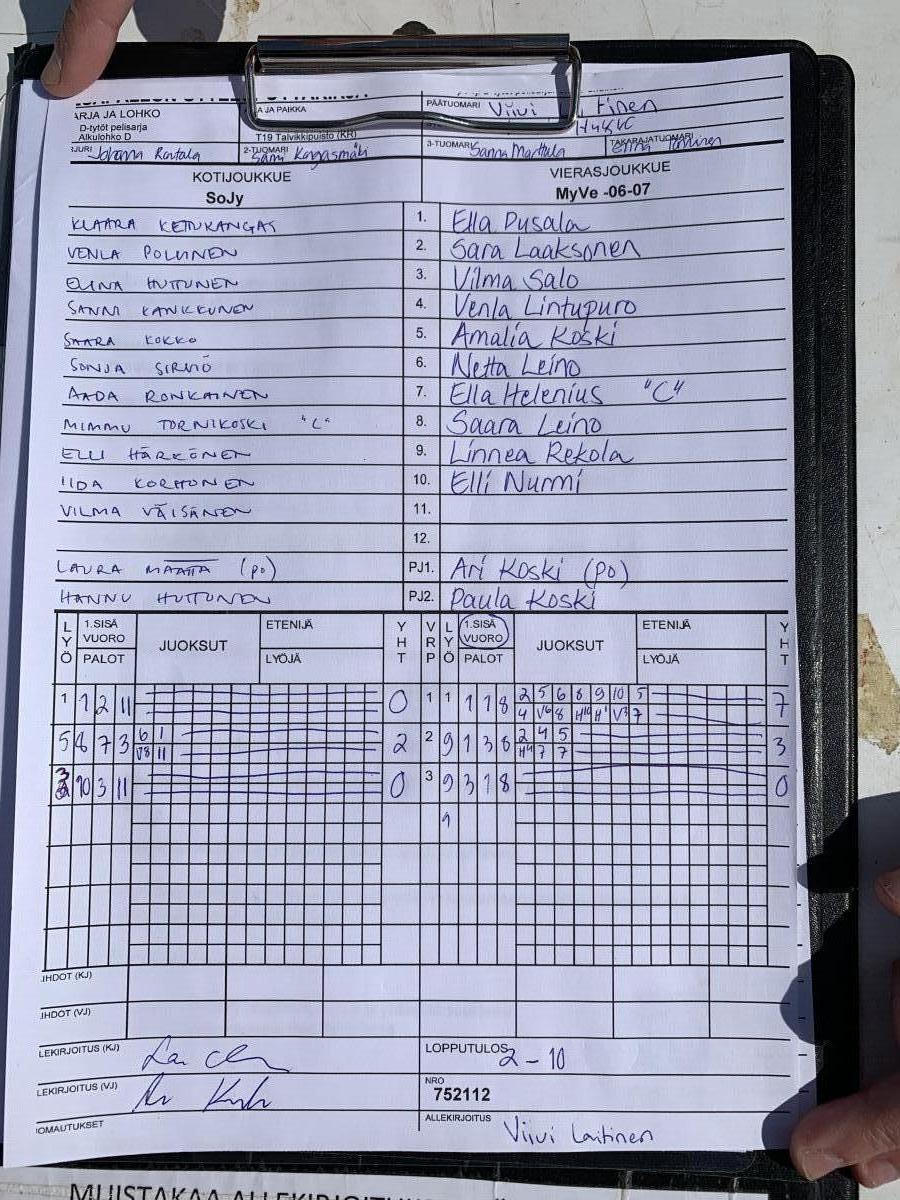 JA PAIKKA
PÄÄTUOMARI Viivi
ARJA JA LOHKO
D-tytöt pelisarja
Alkulohko D
T19 Talvikkipuisto (KR)
Johanna Rantala
2-TUOMARI Sami Kangasmäki
3-TUOMARI Sanna Marttula
TAKARAJATUOMARI
KOTIJOUKKUE VIERASJOUKKUE
SoJy MyVe -06-07
KLAARA KETUKANGAS 1. Ella Pusala
VENLA POLVINEN 2. Sara Laaksonen
ELINA HUTTUNEN 3. Vilma Salo
SANNI KANKKUNEN 4. Venla Lintupuro
SAARA KOKKO 5. Amalia Koski
SONJA SIRVIÖ 6. Netta Leino
AADA RONKAINEN 7. Ella Helenius "C"
MIMMU TORNIKOSKI "C" 8. Saara Leino
ELLI HÄRKÖNEN 9. Linnea Rekola
IIDA KORHONEN 10. Elli Nurmi
VILMA VÄISÄNEN 11.
12.
LAURA MÄÄTTÄ (po) PJ1. Ari Koski (po)
HANNU HUTTUNEN PJ2. Paula Koski
LYÖ 1.SISÄ VUORO PALOT JUOKSUT ETENIJÄ LYÖJÄ YHT VRP LYÖ 1.SISÄ VUORO PALOT JUOKSUT ETENIJÄ LYÖJÄ YHT
1 1 2 11 0 1 1 1 1 8 2 5 6 8 9 10 5 7
4 V6 8 H10 H1 V3 7
5 8 7 3 6 1 2 2 9 1 3 8 2 4 5 3
V8 11 H4 7 7
3 10 3 11 0 3 9 3 1 8 0
9
IHDOT (KJ)
IHDOT (VJ)
LEKIRJOITUS (KJ) LOPPUTULOS 2 - 10
LEKIRJOITUS (VJ) NRO
752112
OMAUTUKSET ALLEKIRJOITUS
Viivi Laitinen
MUISTAKAA